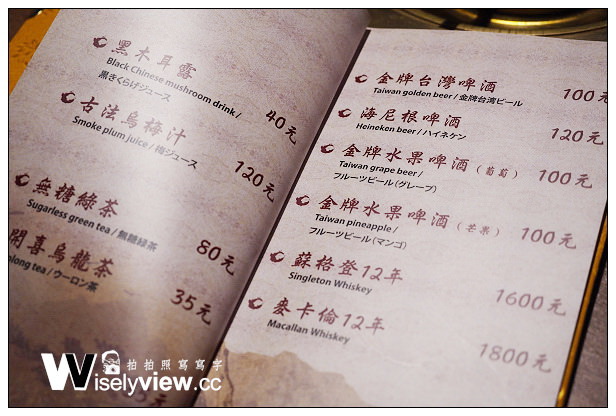 黑木耳露 40元
Black Chinese mushroom drink /
黒きくらげジュース
古法烏梅汁 120元
Smoke plum juice / 梅ジュース
無糖綠茶 80元
Sugarless green tea / 無糖緑茶
開喜烏龍茶 35元
olong tea / ウーロン茶
金牌台灣啤酒 100元
Taiwan golden beer / 金牌台湾ビール
海尼根啤酒 120元
Heineken beer / ハイネケン
金牌水果啤酒（葡萄） 100元
Taiwan grape beer /
フルーツビール（グレープ）
金牌水果啤酒（芒果） 100元
Taiwan pineapple /
フルーツビール（マンゴ）
蘇格登12年 1600元
Singleton Whiskey
麥卡倫12年 1800元
Macallan Whiskey
拍拍照寫寫字
Wiselyview.cc